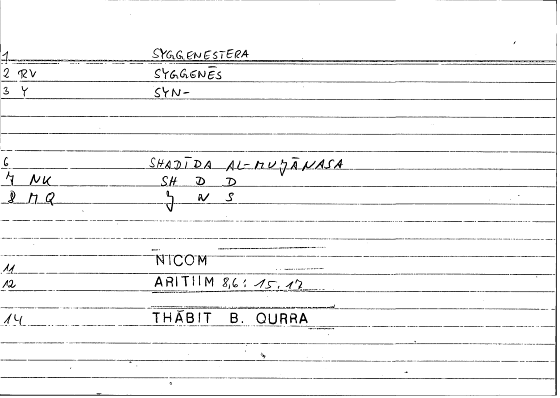 1 SYGGENESTERA
2 RV SYGGENĒS
3 Y SYN-
6 SHADĪDA AL-MUJĀNASA
7 NK SH D D
8 MQ J N S
11 NICOM
12 ARITIIM 8,6: 15.17
14 THĀBIT B. QURRA